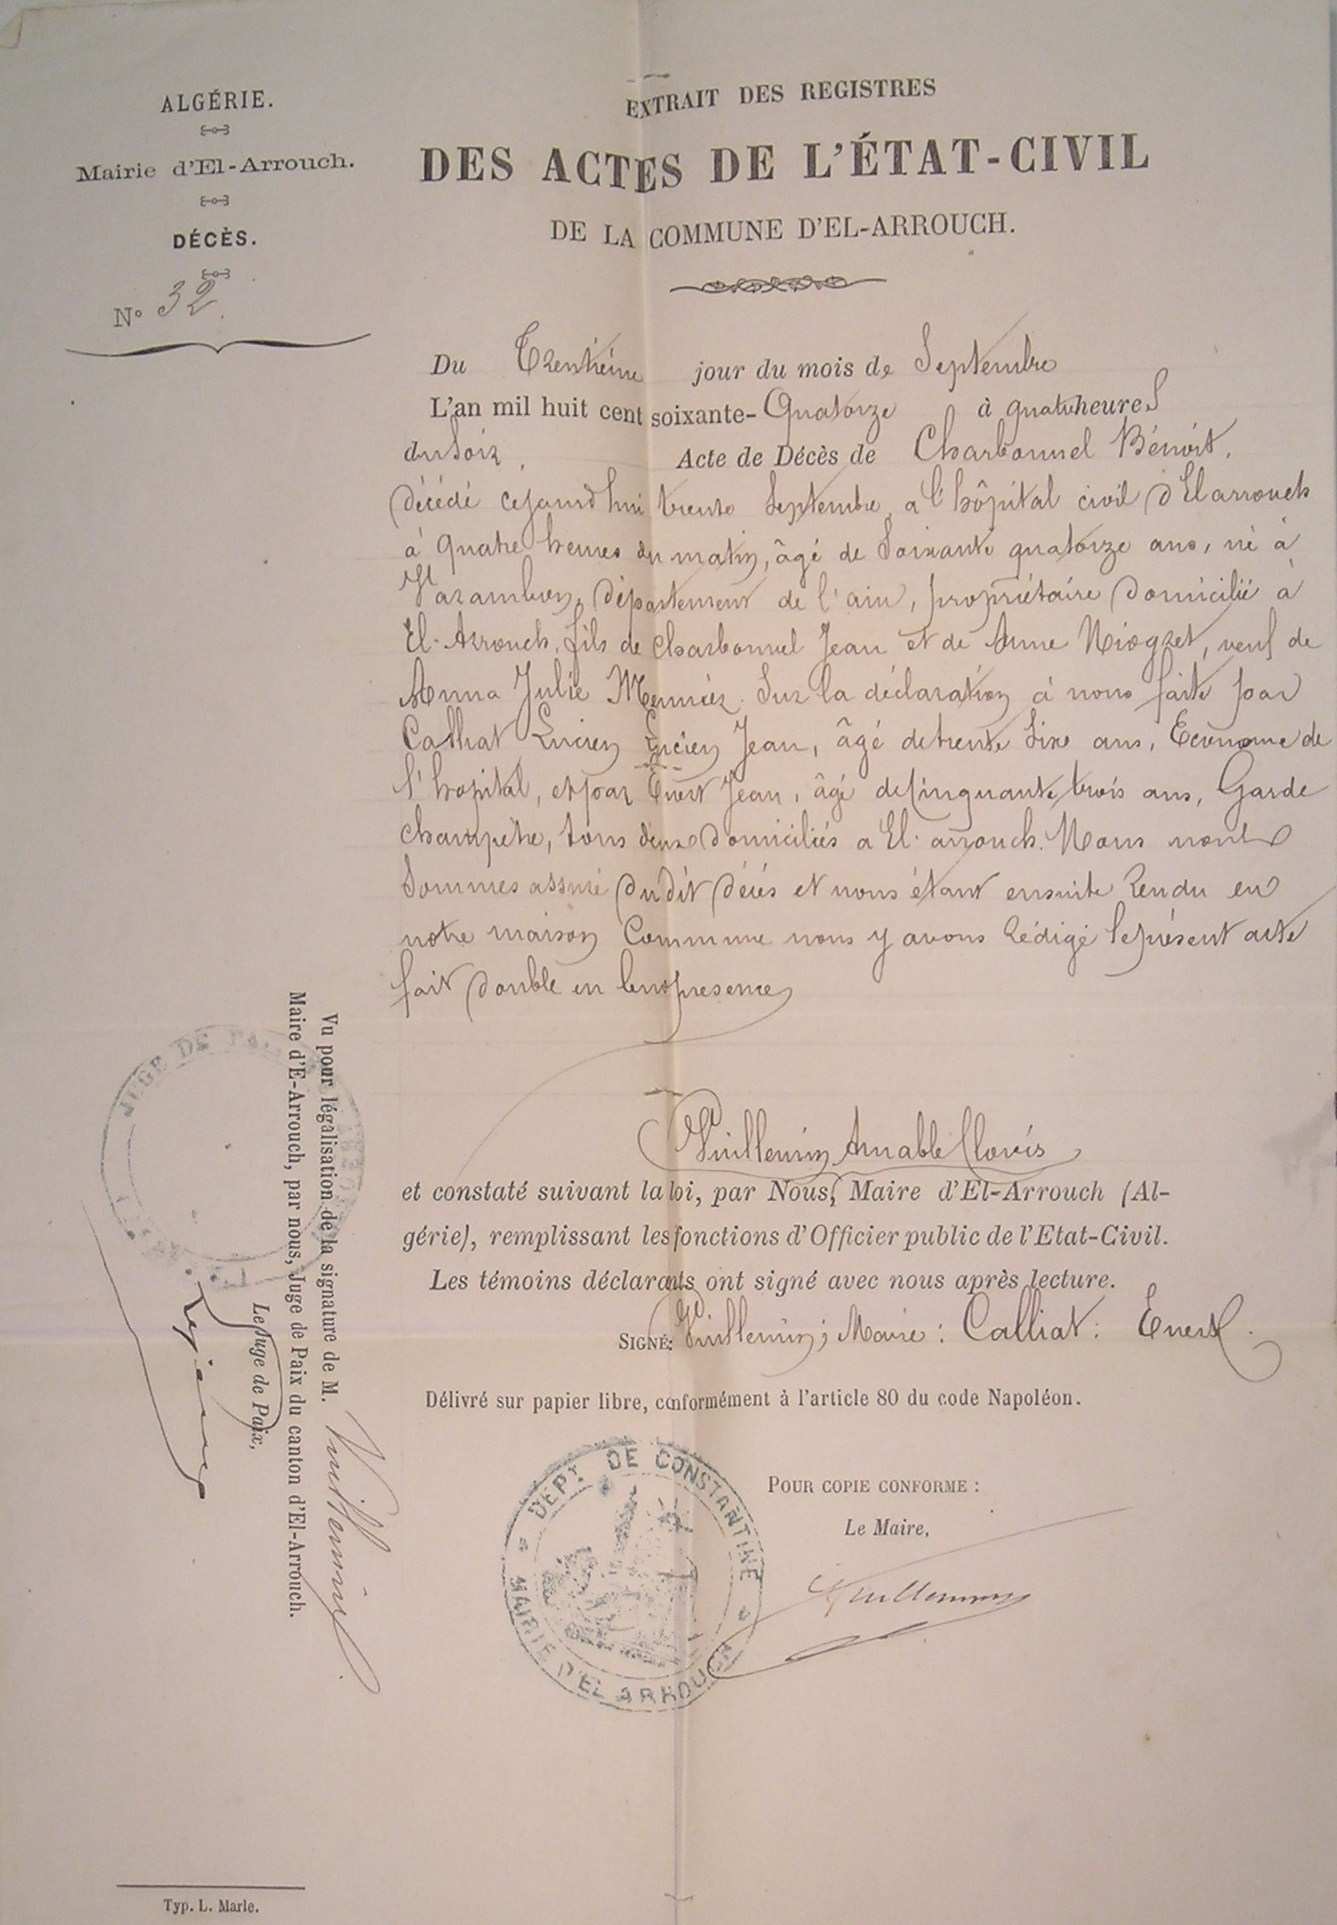 ALGÉRIE.
Mairie d'El-Arrouch.
DÉCÈS.
N° 32.
EXTRAIT DES REGISTRES
DES ACTES DE L'ÉTAT-CIVIL
DE LA COMMUNE D'EL-ARROUCH.
Du Trentième jour du mois de Septembre
L'an mil huit cent soixante-Quatorze à quatre heures
du soir, Acte de Décès de Charbonnel Bénoit,
décédé cejourd'hui trente Septembre, a l'hôpital civil d'Elarrouch
à quatre heures du matin, âgé de Soixante quatorze ans, né à
Varambon, département de l'ain, propriétaire domicilié à
El-Arrouch, fils de Charbonnel Jean et de Anne Niogret, veuf de
Anna Julie Meunier. Sur la déclaration à nous faite par
Calliat Lucien Lucien Jean, âgé de trente Six ans, Econome de
l'hopital, et par Evert Jean, âgé de Cinquante trois ans, Garde
champêtre, tous deux domiciliés a El-arrouch. Nous nous
Sommes assuré dudit décés et nous étant ensuite Rendu en
notre maison Commune nous y avons Rédigé le présent acte
fait double en leur présence
Vuillemin Amable Clovis
et constaté suivant la loi, par Nous, Maire d'El-Arrouch (Al-
gérie), remplissant les fonctions d'Officier public de l'Etat-Civil.
Les témoins déclarants ont signé avec nous après lecture.
SIGNÉ: Vuillemin; Maire: Calliat: Evert.
Délivré sur papier libre, conformément à l'article 80 du code Napoléon.
POUR COPIE CONFORME:
Le Maire,
Vuillemin
DEPT. DE CONSTANTINE
MAIRIE D'EL ARROUCH
Vu pour légalisation de la signature de M. Vuillemin
Maire d'E-Arrouch, par nous, Juge de Paix du canton d'El-Arrouch.
Le Juge de Paix,
JUGE DE PAIX
Typ. L. Marle.